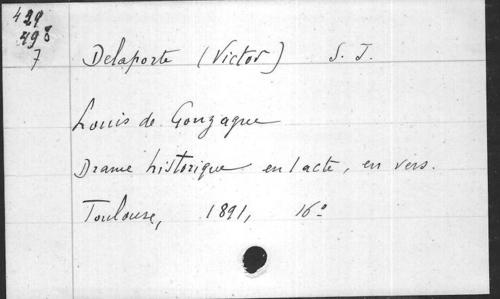 429
498
7
Delaporte (Victor) S. J.
Louis de Gonzague
Drame historique en 1 acte, en vers.
Toulouse, 1891, 16º